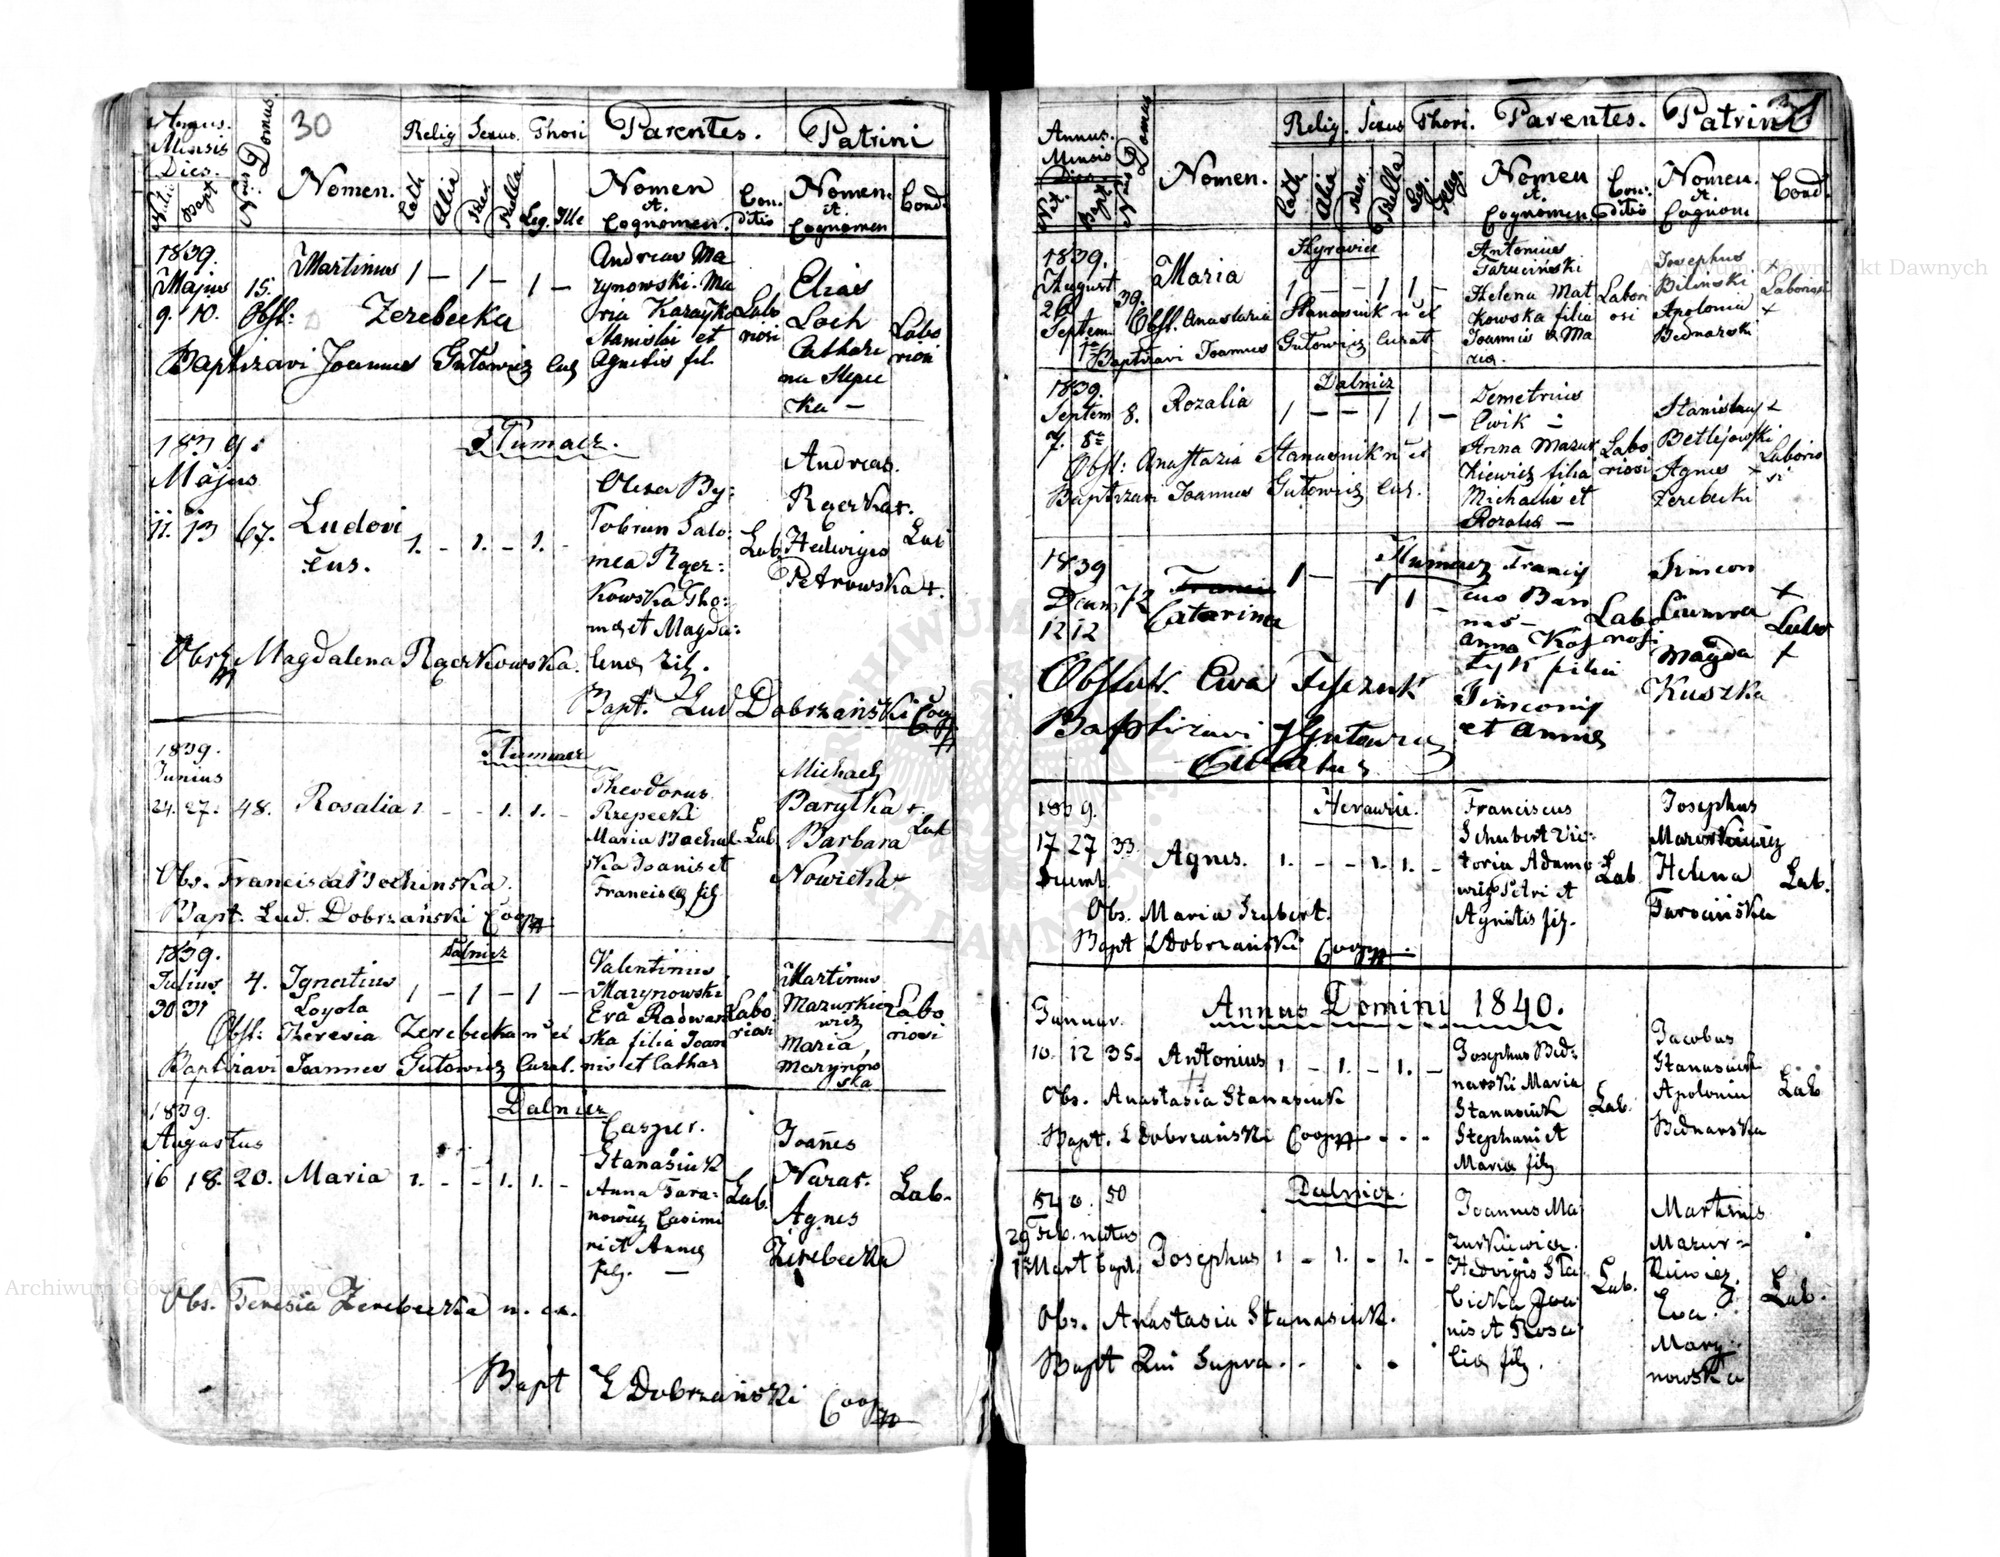 30
Annus. Mensis Dies.
Nrus Domus.
Relig. Sexus. Thori
Parentes.
Patrini
Nat. Bapt.
Nomen.
Cath Alia Puer Puella Leg. Ille
Nomen et Cognomen.
Conditio
Nomen. et Cognomen
Cond.
1839.
Majus 15. Martinus 1 — 1 — 1 —
9. 10.
Andreas Ma
rynowski. Ma
ria Karayko
Stanislai et
Agnetis fil.
Labo
riosi
Elias
Loch
Cathari
na Slepec
ka —
Labo
riosi
Obst: Zerebecka
Baptizavi Joannes Gutowicz Cur
1839:
Tłumacz.
Majus
11. 13 67. Ludovi
cus.
1. - 1. - 1. -
Olexa By:
Tobrian Salo:
mea Rącz:
kowska Tho:
mæ et Magda:
lenæ filˍ.
Lab
Andreas.
Rączka +.
Hedwigis
Petrowska +.
Lab
Obst. Magdalena Rączkowska.
Bapt. Lud Dobrzański Coop
1839.
Tłumacz
Junius
24. 27. 48. Rosalia 1. - - 1. 1. -
Theodorus
Rzepecki
Maria Bachul-
ska Joanis et
Franciscæ fil.
Lab
Michael
Baryłka +
Barbara
Nowicka +
Lab
Obs. Francisca Bochinska.
Bapt. Lud. Dobrzański Coop
1839.
Dalnicz
Julius 4. Ignatius
30 31 Loyola
1 — 1 — 1 —
Valentinus
Marynowski
Eva Radwan
ska filia Joan
nis et Cathar
Labo
riosi
Martinus
Mazurkie
wicz
Maria
Marynow
ska
Labo
riosi
Obst: Theresia Zerebecka n et
Baptizavi Joannes Gutowicz Curat.
1839.
Dalnicz
Augustus
16 18. 20. Maria 1. - - 1. 1. -
Casper.
Stanasiuk
Anna Tara:
nowicz Casimi
ri et Annæ
fil. —
Lab.
Joañes
Naras.
Agnes
Zerebecka
Lab.
Obs. Teresia Zerebecka n. ex.
Bapt L Dobrzański Coop
31
Annus. Mensis Dies.
Nrus Domus
Relig. Sexus Thori.
Parentes.
Patrini
Nat. Bapt.
Nomen.
Cath. Alia Puer. Puella Leg. Illeg.
Nomen et Cognomen.
Conditio
Nomen. et Cognom
Cond.
1839.
Hyrawiec
August 39. Maria 1 — — 1 1 —
26
Septem
1a
Antonius
Taracinski
Helena Mat
kowska filia
Joannis & Ma
ria.
Labori
osi
Josephus +
Bilinski
Apolonia +
Bednarski
Laboriosi
Obst. Anastazia Stanasiuk n et
Baptizavi Joannes Gutowicz Curat
1839.
Dalnicz
Septem 8. Rozalia 1 — — 1 1 —
7. 8a
Demetrius
Cwik —
Anna Mazur
kiewicz filia
Michaelis et
Rozalia —
Labo
riosi
Stanislaus +
Betlejowski
Agnes +
Zerebecki
Laborio
si
Obst: Anastazia Stanasiuk n et
Baptizavi Joannes Gutowicz Cur.
1839
Tłumacz
Decem 72 Catarina 1 — 1 1 -
12 12
Francis
cus Ban
nas —
Anna Kos
tyk filia
Simeonis
et Anniæ
Labo
riosi
Simeon
Czumra +
Magda +
Kuszka
Labo
Obstetr. Ewa Feszczuk
Baptizavi J Gutowicz
Curatus
1839.
Herawiec.
17 27 33. Agnes. 1. - - 1. 1. -
Decemb.
Franciscus
Schubert Vic:
toria Adamo
wicz Petri et
Agnetis fil.
Lab.
Josephus
Mazurkiewicz
Helena
Tarocińska
Lab.
Obs. Maria Szubert.
Bapt L Dobrzański Coop
Annus Domini 1840.
Januar.
10. 12 35. Antonius 1 - 1. - 1. -
Josephus Bed:
narski Maria
Stanasiuk
Stephani et
Maria fil.
Lab.
Jacobus
Stanasiuk
Apolonia
Bednarska
Lab
Obs. Anastasia Stanasiuk
Bapt. L Dobrzański Coop - - -
1840. 50
Dalnicz.
29 Feb. natus
1 Mart bapt. Josephus 1 - 1. - 1. -
Joannes Ma:
zurkiewicz.
Hedvigis Sta
bicka Joa
nis et Rosa
liæ fil.
Lab.
Martinus
Mazur-
kiewicz.
Eva.
Mary:
nowska
Lab.
Obs. Anastasia Stanasiuk.
Bapt Qui Supra. - . .
Archiwum Główne Akt Dawnych
Archiwum Główne Akt Dawnych